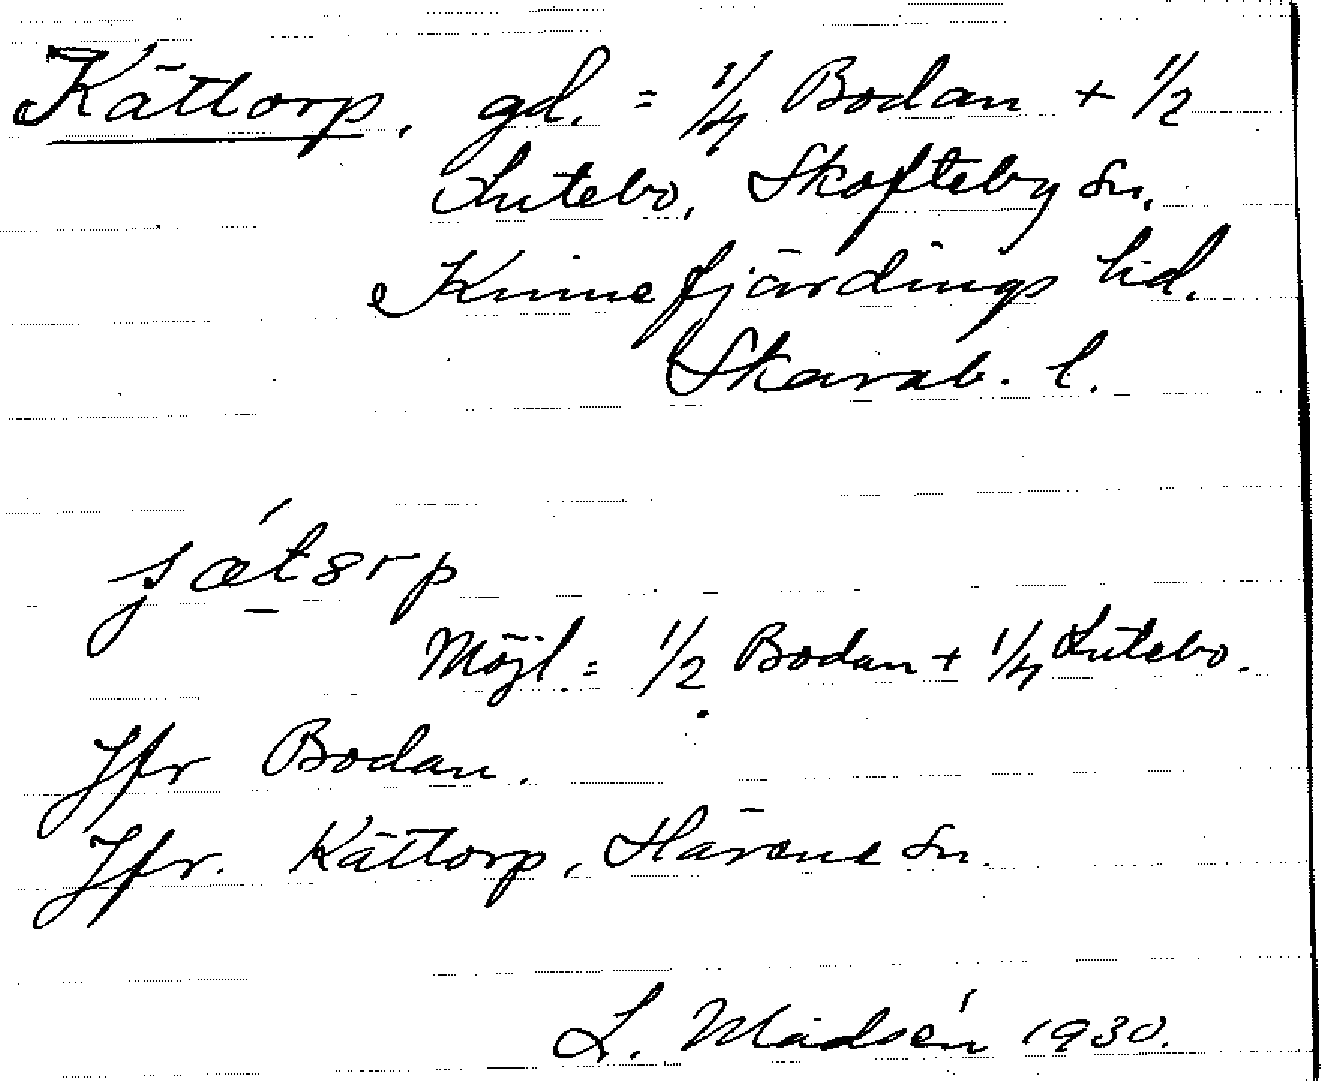 Kättorp, gd. = 1/4 Bodan + 1/2
Lutebo, Skofteby sn.
Kinnefjärdings hd.
Skarab. l.
Möjl. = 1/2 Bodan + 1/4 Lutebo.
Jfr Bodan.
Jfr. Kättorp, Härene sn.
L. Madsén 1930.